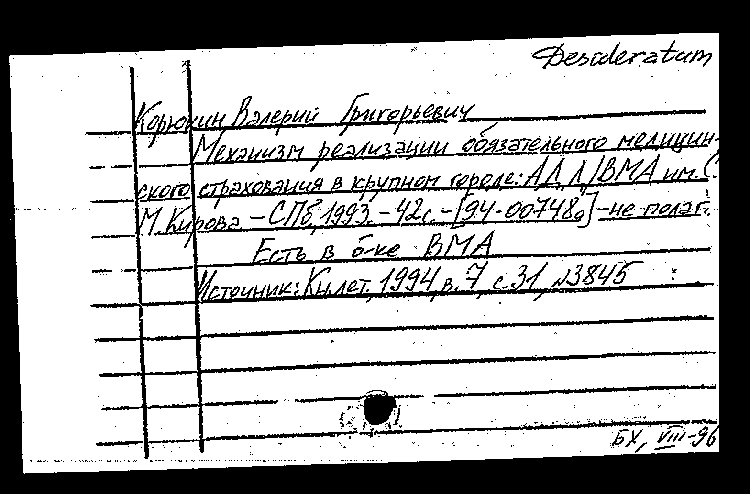 Desideratum
Корюкин Валерий Григорьевич
Механизм реализации обязательного медицин-
ского страхования в крупном городе: АД /ВМА им. С.
М. Кирова - СПб, 1993. - 42 с. - [94-00748а] - не полаг.
Есть в б-ке ВМА
Источник: Кн. лет., 1994, в. 7, с. 31, №3845
БХ, VIII-96